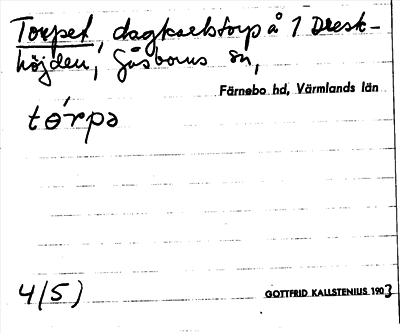 Torpet, dagkarlstorp å 1 Dresk-
höjden, Gåsborns sn,
Färnebo hd, Värmlands län
tórpə
4(5)
GOTTFRID KALLSTENIUS 1903